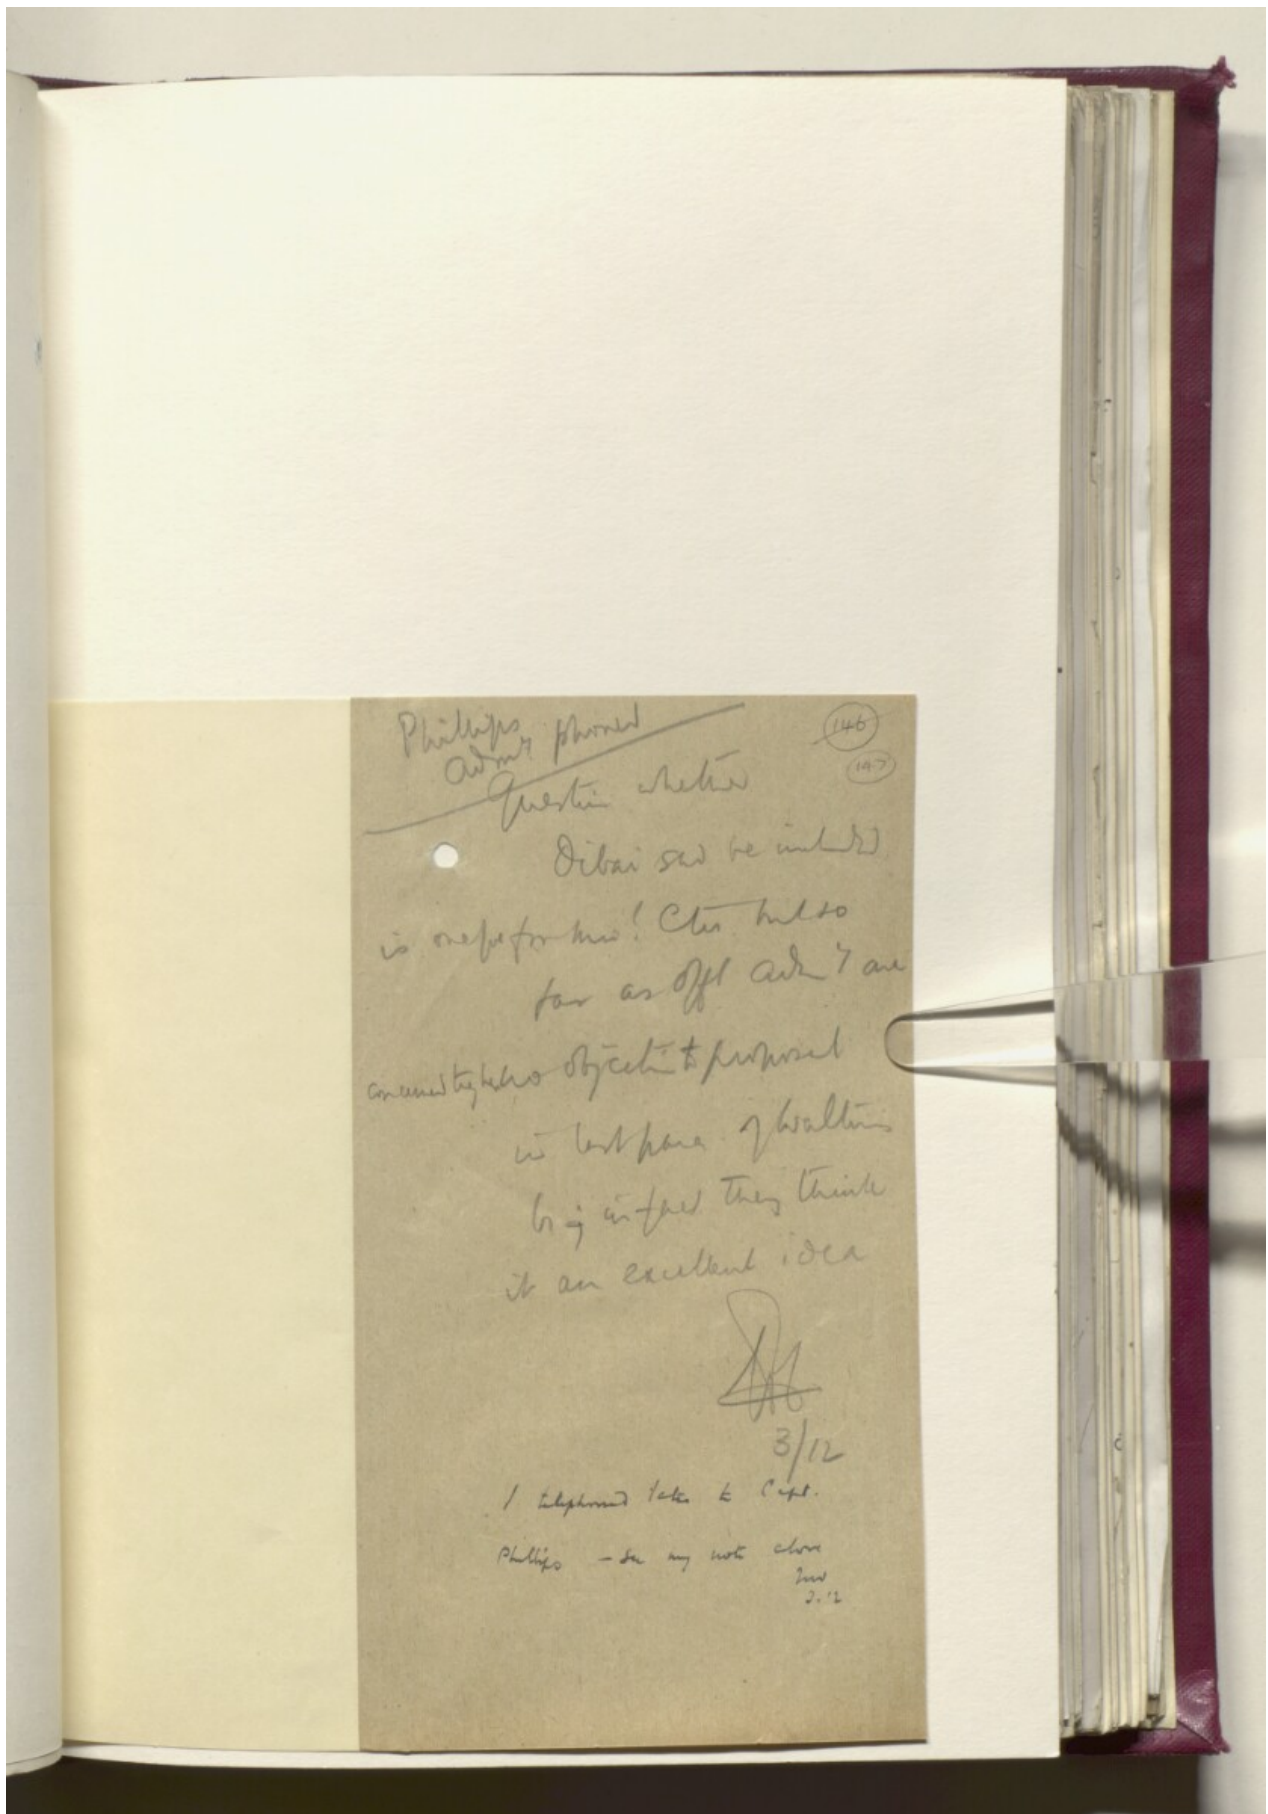 Phillips
Admty phoned
146
147
Question whether
Dibai shd be included
is one for
far as Admty are
concerned they have no objection to proposal
in last para of Walton's
in fact they think
it an excellent idea
3/12
I telephoned later to Capt.
Phillips – see my note above
3.12